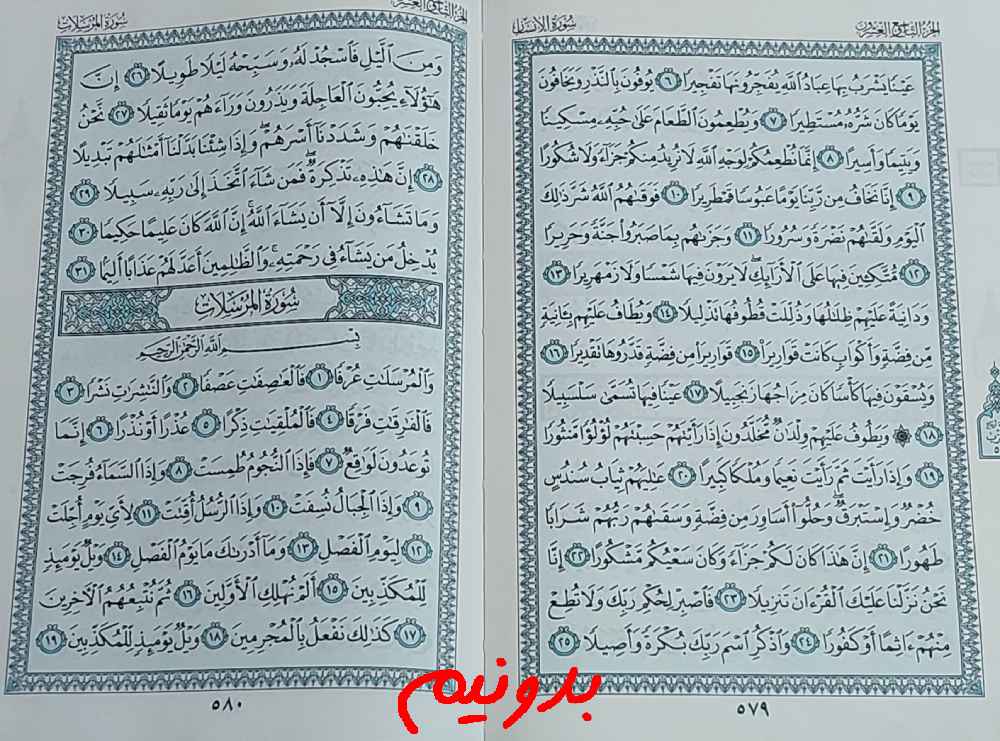 الجزء التاسع والعشرون
سورة الإنسان
عَيْنًا يَشْرَبُ بِهَا عِبَادُ ٱللَّهِ يُفَجِّرُونَهَا تَفْجِيرًا ٦ يُوفُونَ بِٱلنَّذْرِ وَيَخَافُونَ
يَوْمًا كَانَ شَرُّهُۥ مُسْتَطِيرًا ٧ وَيُطْعِمُونَ ٱلطَّعَامَ عَلَىٰ حُبِّهِۦ مِسْكِينًا
وَيَتِيمًا وَأَسِيرًا ٨ إِنَّمَا نُطْعِمُكُمْ لِوَجْهِ ٱللَّهِ لَا نُرِيدُ مِنكُمْ جَزَآءً وَلَا شُكُورًا
٩ إِنَّا نَخَافُ مِن رَّبِّنَا يَوْمًا عَبُوسًا قَمْطَرِيرًا ١٠ فَوَقَىٰهُمُ ٱللَّهُ شَرَّ ذَٰلِكَ
ٱلْيَوْمِ وَلَقَّىٰهُمْ نَضْرَةً وَسُرُورًا ١١ وَجَزَىٰهُم بِمَا صَبَرُوا۟ جَنَّةً وَحَرِيرًا
١٢ مُّتَّكِـِٔينَ فِيهَا عَلَى ٱلْأَرَآئِكِ ۖ لَا يَرَوْنَ فِيهَا شَمْسًا وَلَا زَمْهَرِيرًا ١٣
وَدَانِيَةً عَلَيْهِمْ ظِلَٰلُهَا وَذُلِّلَتْ قُطُوفُهَا تَذْلِيلًا ١٤ وَيُطَافُ عَلَيْهِم بِـَٔانِيَةٍ
مِّن فِضَّةٍ وَأَكْوَابٍ كَانَتْ قَوَارِيرَا۠ ١٥ قَوَارِيرَا۟ مِن فِضَّةٍ قَدَّرُوهَا تَقْدِيرًا ١٦
وَيُسْقَوْنَ فِيهَا كَأْسًا كَانَ مِزَاجُهَا زَنجَبِيلًا ١٧ عَيْنًا فِيهَا تُسَمَّىٰ سَلْسَبِيلًا
١٨ ۞ وَيَطُوفُ عَلَيْهِمْ وِلْدَٰنٌ مُّخَلَّدُونَ إِذَا رَأَيْتَهُمْ حَسِبْتَهُمْ لُؤْلُؤًا مَّنثُورًا
١٩ وَإِذَا رَأَيْتَ ثَمَّ رَأَيْتَ نَعِيمًا وَمُلْكًا كَبِيرًا ٢٠ عَٰلِيَهُمْ ثِيَابُ سُندُسٍ
خُضْرٌ وَإِسْتَبْرَقٌ ۖ وَحُلُّوٓا۟ أَسَاوِرَ مِن فِضَّةٍ وَسَقَىٰهُمْ رَبُّهُمْ شَرَابًا
طَهُورًا ٢١ إِنَّ هَٰذَا كَانَ لَكُمْ جَزَآءً وَكَانَ سَعْيُكُم مَّشْكُورًا ٢٢ إِنَّا
نَحْنُ نَزَّلْنَا عَلَيْكَ ٱلْقُرْءَانَ تَنزِيلًا ٢٣ فَٱصْبِرْ لِحُكْمِ رَبِّكَ وَلَا تُطِعْ
مِنْهُمْ ءَاثِمًا أَوْ كَفُورًا ٢٤ وَٱذْكُرِ ٱسْمَ رَبِّكَ بُكْرَةً وَأَصِيلًا ٢٥
٥٧٩
الجزء التاسع والعشرون
سورة المرسلات
وَمِنَ ٱلَّيْلِ فَٱسْجُدْ لَهُۥ وَسَبِّحْهُ لَيْلًا طَوِيلًا ٢٦ إِنَّ
هَٰٓؤُلَآءِ يُحِبُّونَ ٱلْعَاجِلَةَ وَيَذَرُونَ وَرَآءَهُمْ يَوْمًا ثَقِيلًا ٢٧ نَّحْنُ
خَلَقْنَٰهُمْ وَشَدَدْنَآ أَسْرَهُمْ ۖ وَإِذَا شِئْنَا بَدَّلْنَآ أَمْثَٰلَهُمْ تَبْدِيلًا
٢٨ إِنَّ هَٰذِهِۦ تَذْكِرَةٌ ۖ فَمَن شَآءَ ٱتَّخَذَ إِلَىٰ رَبِّهِۦ سَبِيلًا ٢٩
وَمَا تَشَآءُونَ إِلَّآ أَن يَشَآءَ ٱللَّهُ ۚ إِنَّ ٱللَّهَ كَانَ عَلِيمًا حَكِيمًا ٣٠
يُدْخِلُ مَن يَشَآءُ فِى رَحْمَتِهِۦ ۚ وَٱلظَّٰلِمِينَ أَعَدَّ لَهُمْ عَذَابًا أَلِيمًۢا ٣١
سُورَةُ المُرْسَلَاتِ
بِسْمِ ٱللَّهِ ٱلرَّحْمَٰنِ ٱلرَّحِيمِ
وَٱلْمُرْسَلَٰتِ عُرْفًا ١ فَٱلْعَٰصِفَٰتِ عَصْفًا ٢ وَٱلنَّٰشِرَٰتِ نَشْرًا ٣
فَٱلْفَٰرِقَٰتِ فَرْقًا ٤ فَٱلْمُلْقِيَٰتِ ذِكْرًا ٥ عُذْرًا أَوْ نُذْرًا ٦ إِنَّمَا
تُوعَدُونَ لَوَٰقِعٌ ٧ فَإِذَا ٱلنُّجُومُ طُمِسَتْ ٨ وَإِذَا ٱلسَّمَآءُ فُرِجَتْ
٩ وَإِذَا ٱلْجِبَالُ نُسِفَتْ ١٠ وَإِذَا ٱلرُّسُلُ أُقِّتَتْ ١١ لِأَىِّ يَوْمٍ أُجِّلَتْ
١٢ لِيَوْمِ ٱلْفَصْلِ ١٣ وَمَآ أَدْرَىٰكَ مَا يَوْمُ ٱلْفَصْلِ ١٤ وَيْلٌ يَوْمَئِذٍ
لِّلْمُكَذِّبِينَ ١٥ أَلَمْ نُهْلِكِ ٱلْأَوَّلِينَ ١٦ ثُمَّ نُتْبِعُهُمُ ٱلْـَٔاخِرِينَ
١٧ كَذَٰلِكَ نَفْعَلُ بِٱلْمُجْرِمِينَ ١٨ وَيْلٌ يَوْمَئِذٍ لِّلْمُكَذِّبِينَ ١٩
٥٨٠
بدونیم